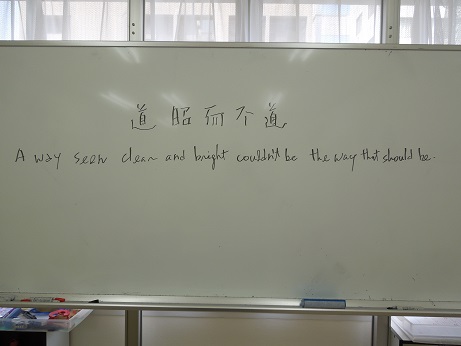 道昭而不道
A way seen clear and bright couldn't be the way that should be.